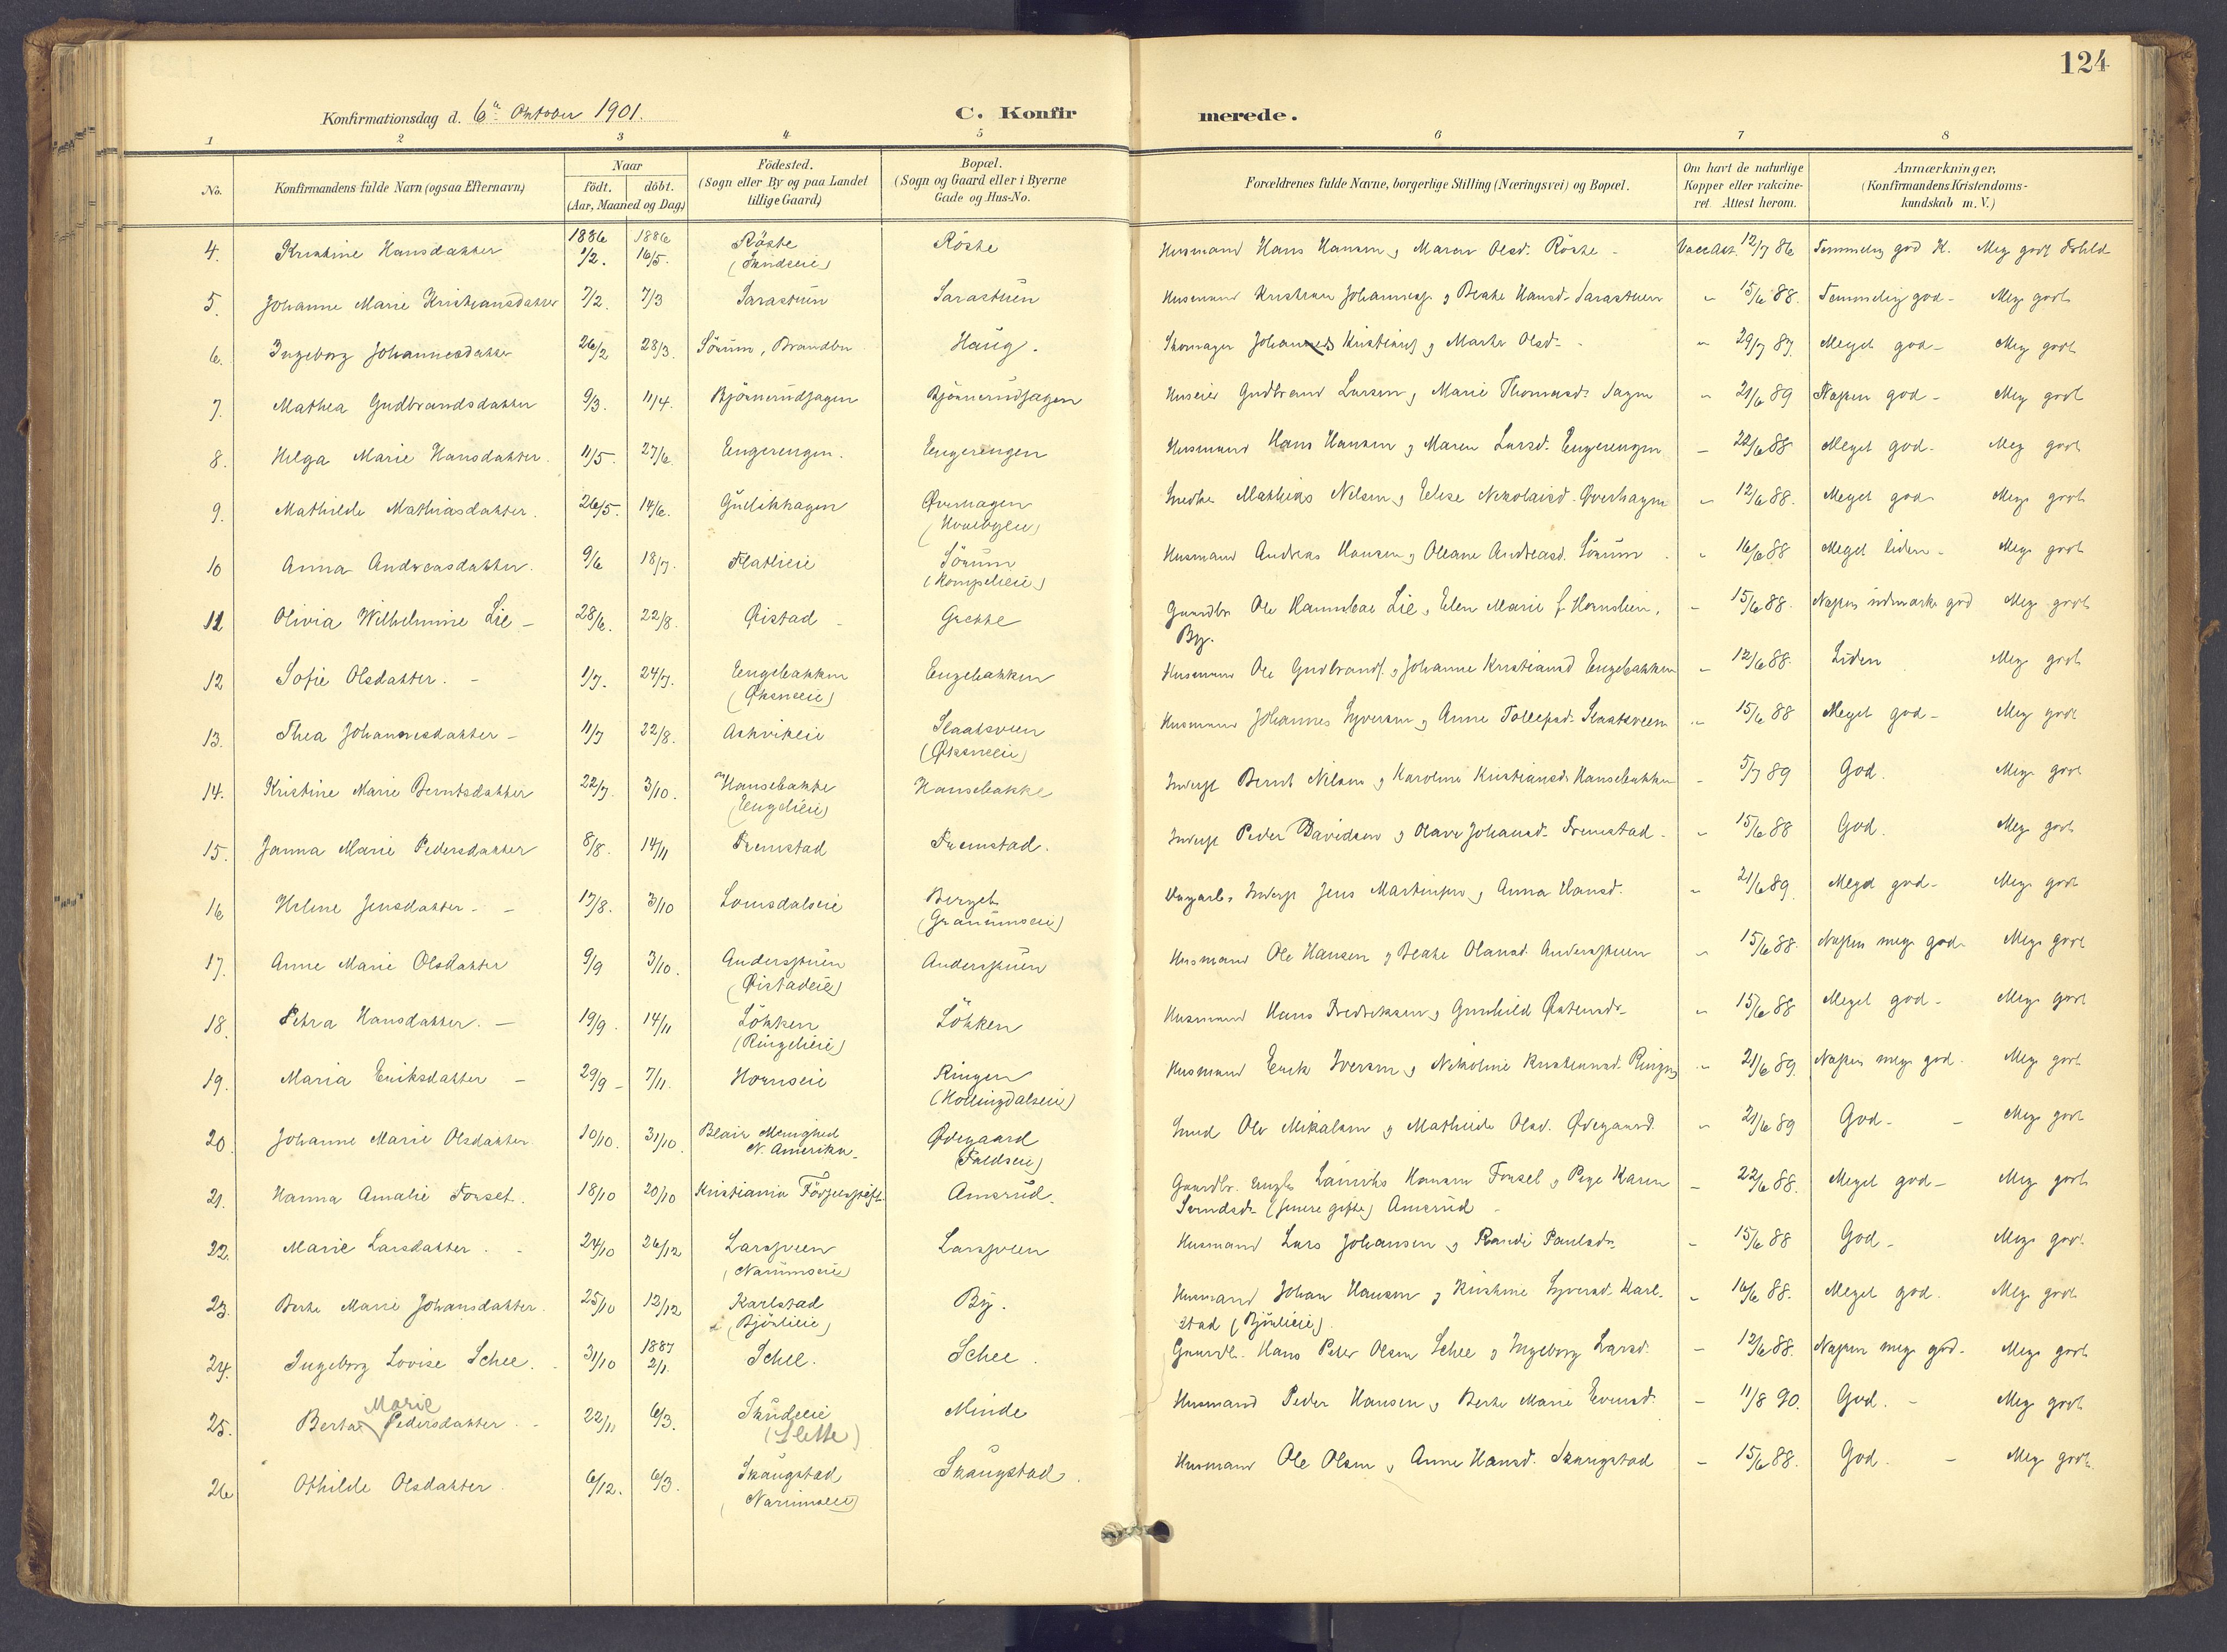 124
Konfirmationsdag d. 6te Oktober 1901.
C. Konfirmerede.
1 2 3 4 5 6 7 8
No.
Konfirmandens fulde Navn (ogsaa Efternavn)
Naar
födt. döbt.
(Aar, Maaned og Dag)
Födested.
(Sogn eller By og paa Landet
tillige Gaard)
Bopæl.
(Sogn og Gaard eller i Byerne
Gade og Hus-No.
Forældrenes fulde Navne, borgerlige Stilling (Næringsvei) og Bopæl.
Om havt de naturlige
Kopper eller vakcine-
ret. Attest herom.
Anmærkninger.
(Konfirmandens Kristendoms-
kundskab m. V.)
4. Kristine Hansdatter 1886 1/2. 1886 16/5. Röste Röste Husmand Hans Hansen og Maren Olsd. Röste - Vacc Att. 12/7 86 Temmelig god K. Meg godt Forhld
5. Johanne Marie Kristiansdatter 7/2. 7/3 Sarastuen Sarastuen Husmand Kristian Johanness. og Beate Hansd. Sarastuen " 15/6 88. Temmelig god - Meg godt
6. Ingeborg Johannesdatter 26/2 28/3. Sörum, Brandbu Haug. Skomager Johannes Kristians og Marte Olsd. - " 29/7 87. Meget god - Meg godt
7. Mathea Gudbrandsdatter 9/3. 11/4. Bjönnerudhagen Bjönnerudhagen Huseier Gudbrand Larsen og Marie Thomasd. Hagen " 21/6 89 Næsten god - Meg godt
8. Helga Marie Hansdatter. 11/5. 27/6. Engerengen. Engerengen Husmand Hans Hansen og Maren Larsd. Engerengen - 22/6 88 Meget god. Meg godt
9. Mathilde Mathiasdatter. 26/5. 14/6. Gudikhagen Øverhagen Snedker Mathias Nilsen og Eline Nikolaisd. Øverhagen " 12/6 88. Meget god Meg godt
10 Anna Andreasdatter. 9/6 18/7. Flatlieie Sörum Husmand Andreas Hansen og Oleane Andreasd. Sörum " 16/6 88 Meget liden - Meg godt
11 Olivia Wilhelmine Lie - 28/6. 22/8. Øistad - Grette Gaardbr Ole Hannibal Lie og Elen Marie f. Hornslien, - 15/6 88. Næsten udmærke god Meg godt
By.
12 Sofie Olsdatter. - 1/7. 24/7. Engebakken Engebakken Husmand Ole Gudbrands. og Johanne Kristiansd Engebakken - 12/6 88. Liden Meg godt
13. Thea Johannesdatter - 11/7 22/8. Askvikeie Slaatsveen Husmand Johannes Syversen og Anne Tollefsd. Slaatsveen " 15/6 88 Meget god - Meg godt
14. Kristine Marie Berntsdatter 22/7. 3/10. Hansebakke (Engelieie) Hansebakke Inderst Bernt Nilsen og Karoline Kristiansd. Hansebakken - 5/7 89 God. Meg godt
15. Janna Marie Pedersdatter 8/8. 14/11 Fremstad Fremstad. Inderst Peder Davidsen og Olava Johansd. Fremstad - " 15/6 88 God. Meg godt
16 Helene Jensdatter - - 17/8. 3/10 Lomsdalseie Berget (Granumseie) Dagarb. Inderst Jens Martinsen og Anna Hansd. " 21/6 89. Meget god - Meg godt
17. Anne Marie Olsdatter 9/9 3/10. Anderstuen (Øistadeie) Anderstuen Husmand Ole Hansen og Beate Olansd. Anderstuen " 15/6 88. Næsten meg god Meg godt
18. Petra Hansdatter. - 19/9. 14/11 Lökken (Ringelieie) Lökken Husmand Hans Fredriksen og Gunhild Østensd. " 15/6 88 Meget god - Meg godt
19. Maria Eriksdatter - 29/9 - 7/11. Hornseie Ringen (Kollingdalseie) Husmand Erik Iversen og Nikoline Kristiansd. Ringen " 21/6 89. Næsten meg god. Meg godt
20. Johanne Marie Olsdatter. 10/10. 31/10. Blair Menighed N. Amerika. Ødegaard (Faldseie) Smed Ole Mikalsen og Mathilde Olsd. Ødegaard. " 21/6 89 God - - Meg godt
21. Hanna Amalie Fossel. 18/10 20/10 Kristiania Födselsstift. Amsrud. Gaardbr. ungk. Laurits Hansen Fossel og Pige Karen - 22/6 88. Meget god - Meg godt
(senere gifte) Amsrud -
22. Marie Larsdatter. - 24/10 26/12 Larsveen (Narumseie) Larsveen Husmand Lars Johansen og Randi Paulsd. - 15/6 88 God - Meg godt
23. Berte Marie Johansdatter. 25/10 12/12 Karlstad (Bjönlieie) By. Husmand Johan Hansen og Kristine Syversd. Karl- - 16/6 88. Meget god. Meg godt
stad (Bjönlieie).
24. Ingeborg Lovise Schee. 31/10 1887 2/1. Schee. Schee. Gaardbr. Hans Peter Olsen Schee og Ingeborg Larsd. - 12/6 88. Næsten meg god. Meg godt
25. Berta Marie Pedersdatter. - 22/11 6/3. Skudeeie (Slette) Minde Husmand Peder Hansen og Berte Marie Evensd. - 11/8 90. God. - Meg godt
26 Othilde Olsdatter. 6/12. 6/3. Skaugstad (Narumseie) Skaugstad. Husmand Ole Olsen og Anne Hansd. Skaugstad - 15/6 88. God. - Meg godt.